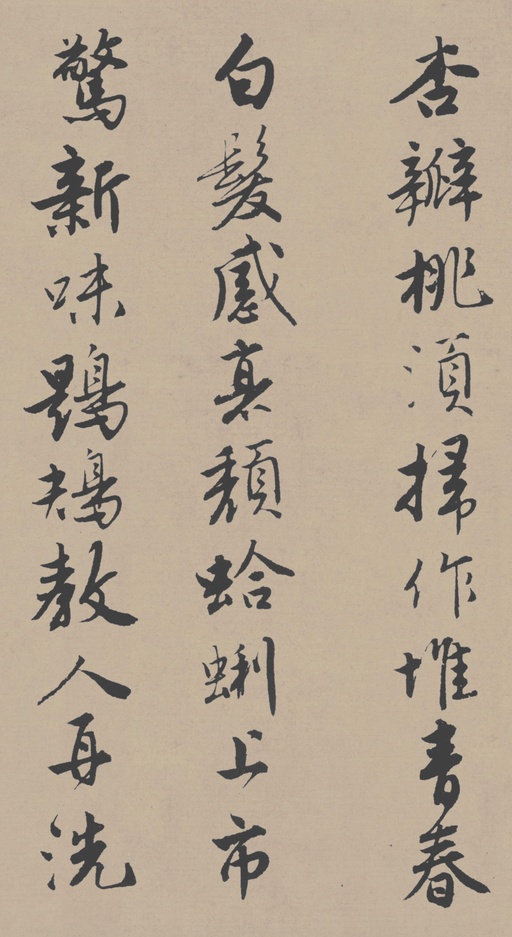 杏瓣桃須掃作堆青春
白髮感衰頹蛤蜊上市
驚新味鶗鴂教人再洗